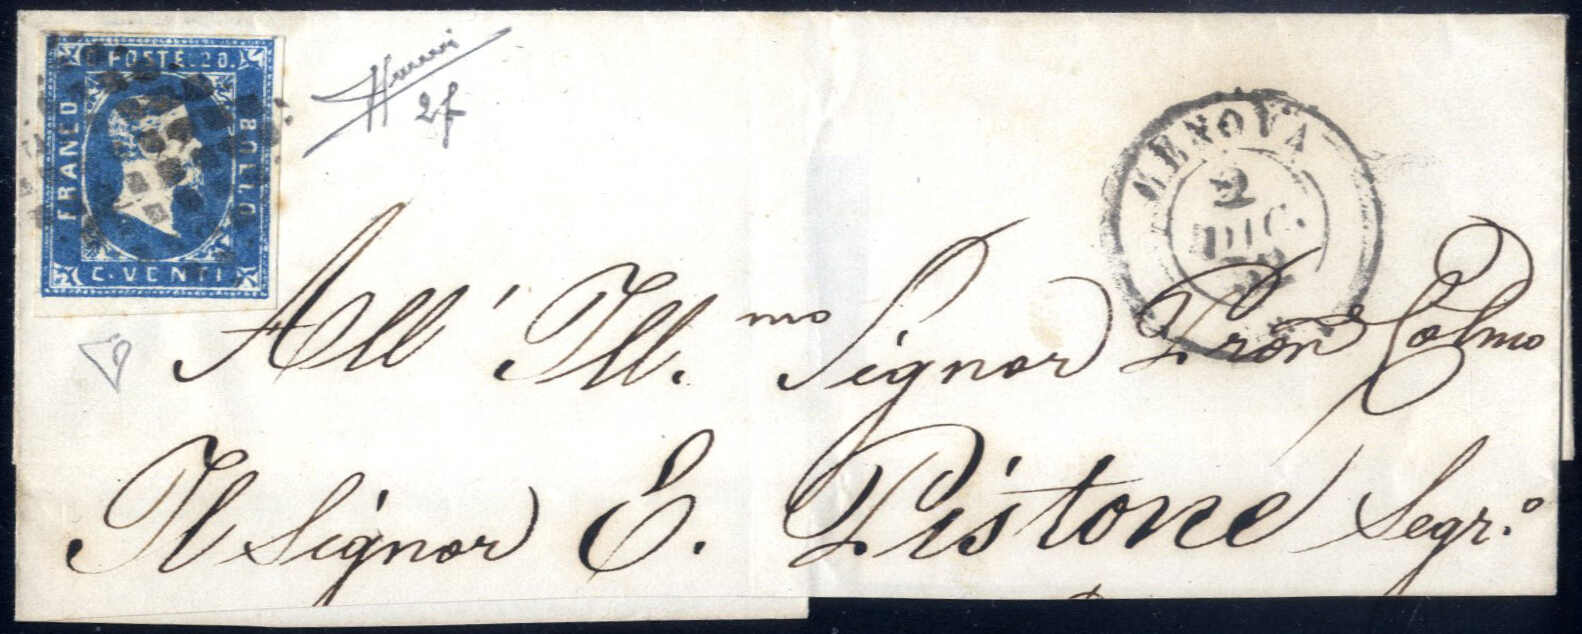 POSTE. 20.
FRANCO
BOLLO
C. VENTI
2f
GENOVA
2
DIC.
All' Ill.mo Signor Pron Colmo
Il Signor E. Pistone Segr.o